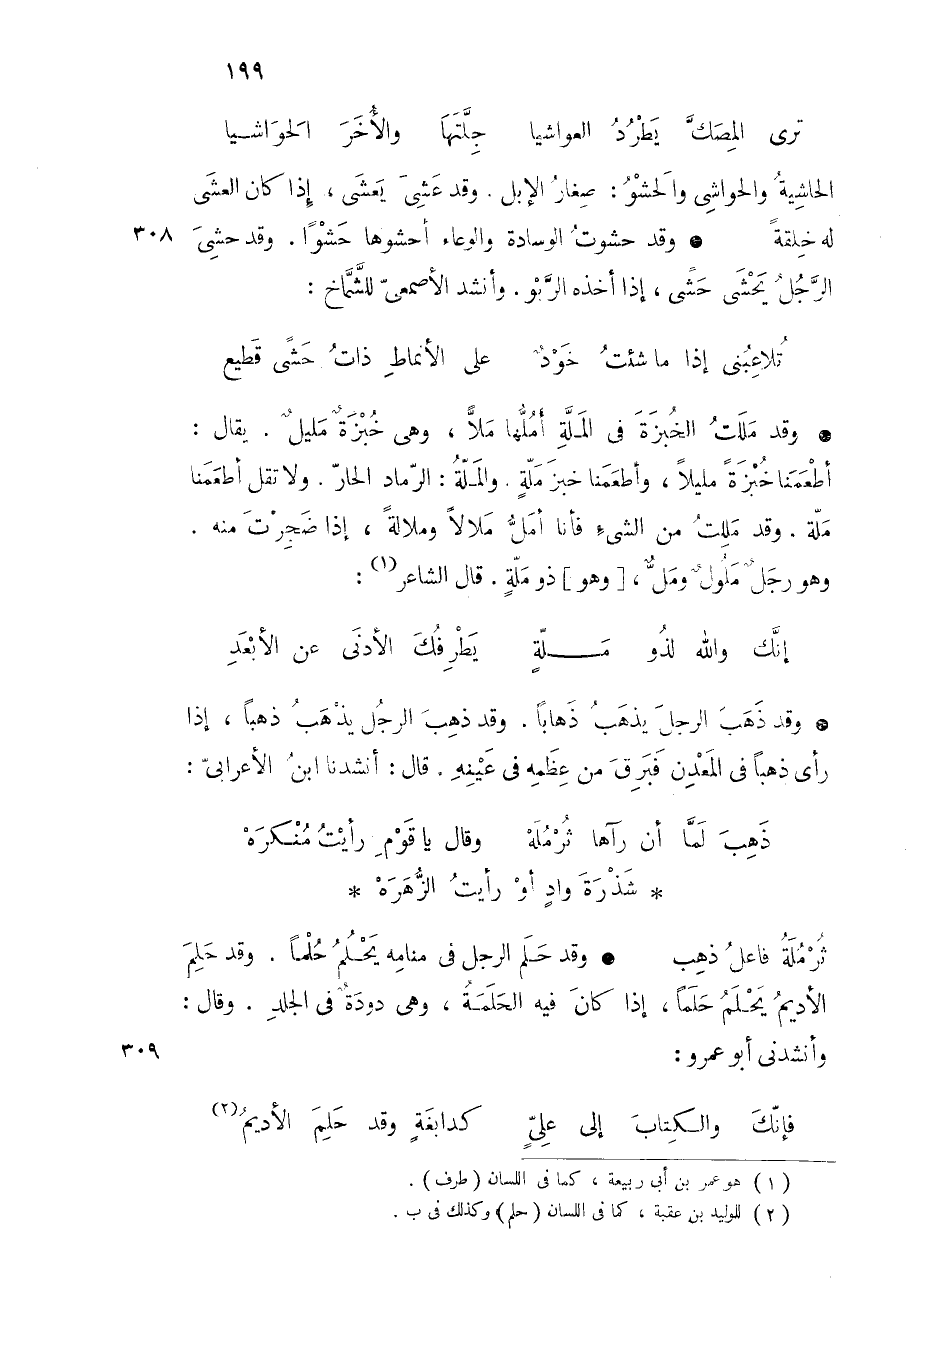 ١٩٩
ترى المِصَكَّ يَطْرُدُ العواشيا جِلَّتَهَا والأُخَرَ الحَوَاشـيا
الحاشِيةُ والحواشِى والحَشْوُ : صِغارُ الإبل . وقد عَشِىَ يَعشَى ، إِذا كان العشَى
له خِلِقةً • وقد حشوتُ الوسادة والوعاء أحشوها حَشْوًا . وقد حشىَ ٣٠٨
الرَّجُلُ يَحْشَى حَشًى ، إذا أخذه الرَّبْو . وأنشد الأصمعىّ للشَّمَّاخ :
تُلاعِبُنى إذا ما شئتُ خَوْدٌ على الأنماطِ ذاتُ حَشًى قَطيع
• وقد مَلَلتُ الخُبزَةَ فى المَلَّةِ أَمُلُّها مَلاًّ ، وهى خُبْزَةٌ مَليلٌ . يقال :
أطْعَمَنا خُبْزَةً مليلاً ، وأطعَمَنا خبزَ مَلّةٍ . والمَلّةُ : الرّماد الحارّ . ولا تقل أطعَمَنا
مَلّة . وقد مَلِلتُ من الشىءِ فأنا أمَلُّ مَلالاً وملالةً ، إذا ضَجِرْتَ منه .
وهو رجَلٌ مَلُولٌ ومَلٌّ ، [ وهو ] ذو مَلّةٍ . قال الشاعر(١) :
إنَّك والله لذُو مَـــلّةٍ يَطْرِفُكَ الأدنَى عن الأبْعَدِ
• وقد ذَهَبَ الرجلَ يذهَبُ ذَهاباً . وقد ذهِبَ الرجُل يذْهَبُ ذهباً ، إذا
رأى ذهباً فى المَعْدِن فَبَرِقَ من عِظَمِه فى عَيْنِهِ . قال : أنشدنا ابنُ الأعرابىّ :
ذَهِبَ لَمَّا أن رآها ثُرْمُلَهْ وقال يا قَوْمِ رأيْتُ مُنْكرَهْ
* شَذْرَةَ وادٍ أوْ رأيتُ الزُّهَرَهْ *
ثُرْمُلَةُ فاعلُ ذهِب • وقد حَلَم الرجل فى منامِه يَحْلُمُ حُلْماً . وقد حَلِمَ
الأديمُ يَحْلَمُ حَلَماً ، إذا كانَ فيه الحَلَمَةُ ، وهى دودَةٌ فى الجلدِ . وقال :
وأنشدنى أبو عمرو : ٣٠٩
فإنّكَ والكِتابَ إلى علِىٍّ كدابغَةٍ وقد حَلِمَ الأديمُ(٢)
(١) هو عمر بن أبى ربيعة ، كما فى اللسان (طرف) .
(٢) للوليد بن عقبة ، كما فى اللسان (حلم) وكذلك فى ب .